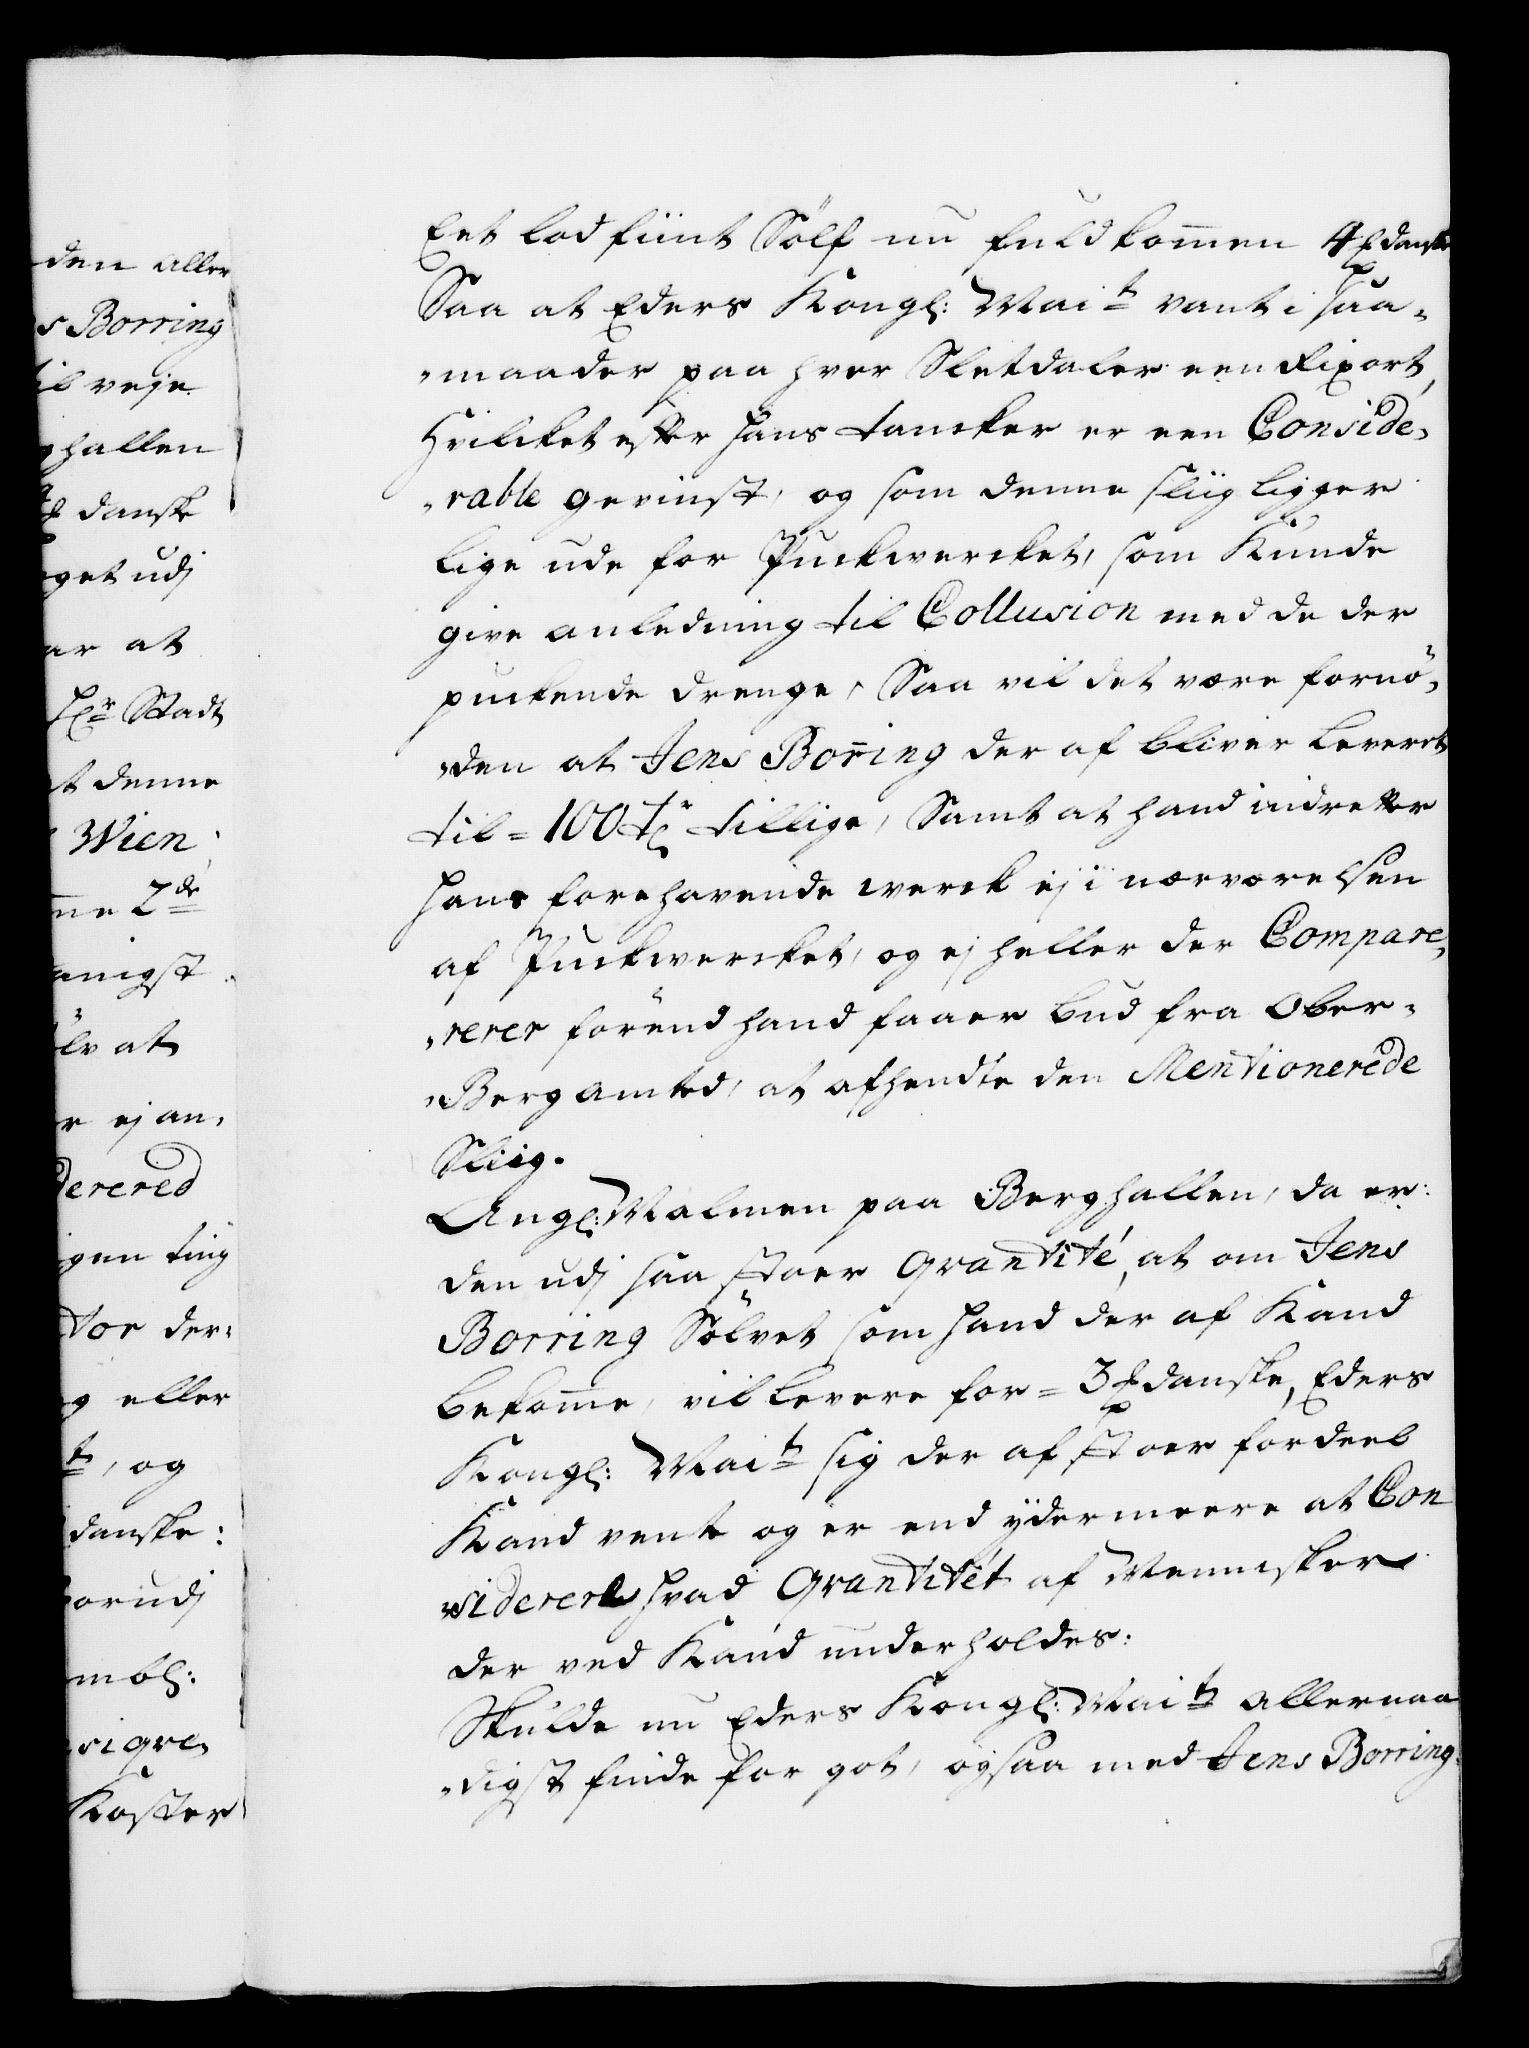 den aller
s Borring
til veje
ghallen
danske
get udj
ar at
Stadt
t denne
Wien
ne 2de
anigst
ölv at
r ej an,
derered
gen ting
tor der:
g eller
, og
danske:
orudj
mbl:
siqve,
Koster
Eet lod fiint Sölf nu fuldkomen 4 ℔ danske
Saa at Eders Kongl: Mait vant i saa-
"maader paa hver Sletdaler een Rixort,
Hvilcket efter hans tancker er een Conside,
"rable gevinst, og som denne sliig ligger
lige ude for Puckwercket, som Kunde
give anledning til Collusion med de der
puckende drenge, Saa vil det være fornö,
"den at Jens Borring der af bliver leveret
til = 100 tr tillige, Samt at hand indretter
hans forehavende werck ej i nærværelsen
af Puckwercket, og ej heller der Compare,
"rerer förend hand faaer bud fra Ober-
"Bergamted, at afhendte den Mentionerede
Sliig.
Angl: Malmen paa Berghallen, da er
den udj saa stoer qvantité, at om Jens
Borring Sölvet som hand der af Kand
bekome, vil levere for = 3 ℔ danske, Eders
Kongl: Mait sig der af stoer fordeel
Kand vente og er end ÿdermeere at Con
siderere hvad Qvantitét af Mennisker
der ved Kand underholdes:
Skulde nu Eders Kongl: Mait allernaa
"digst finde for got, ogsaa med Jens Borring